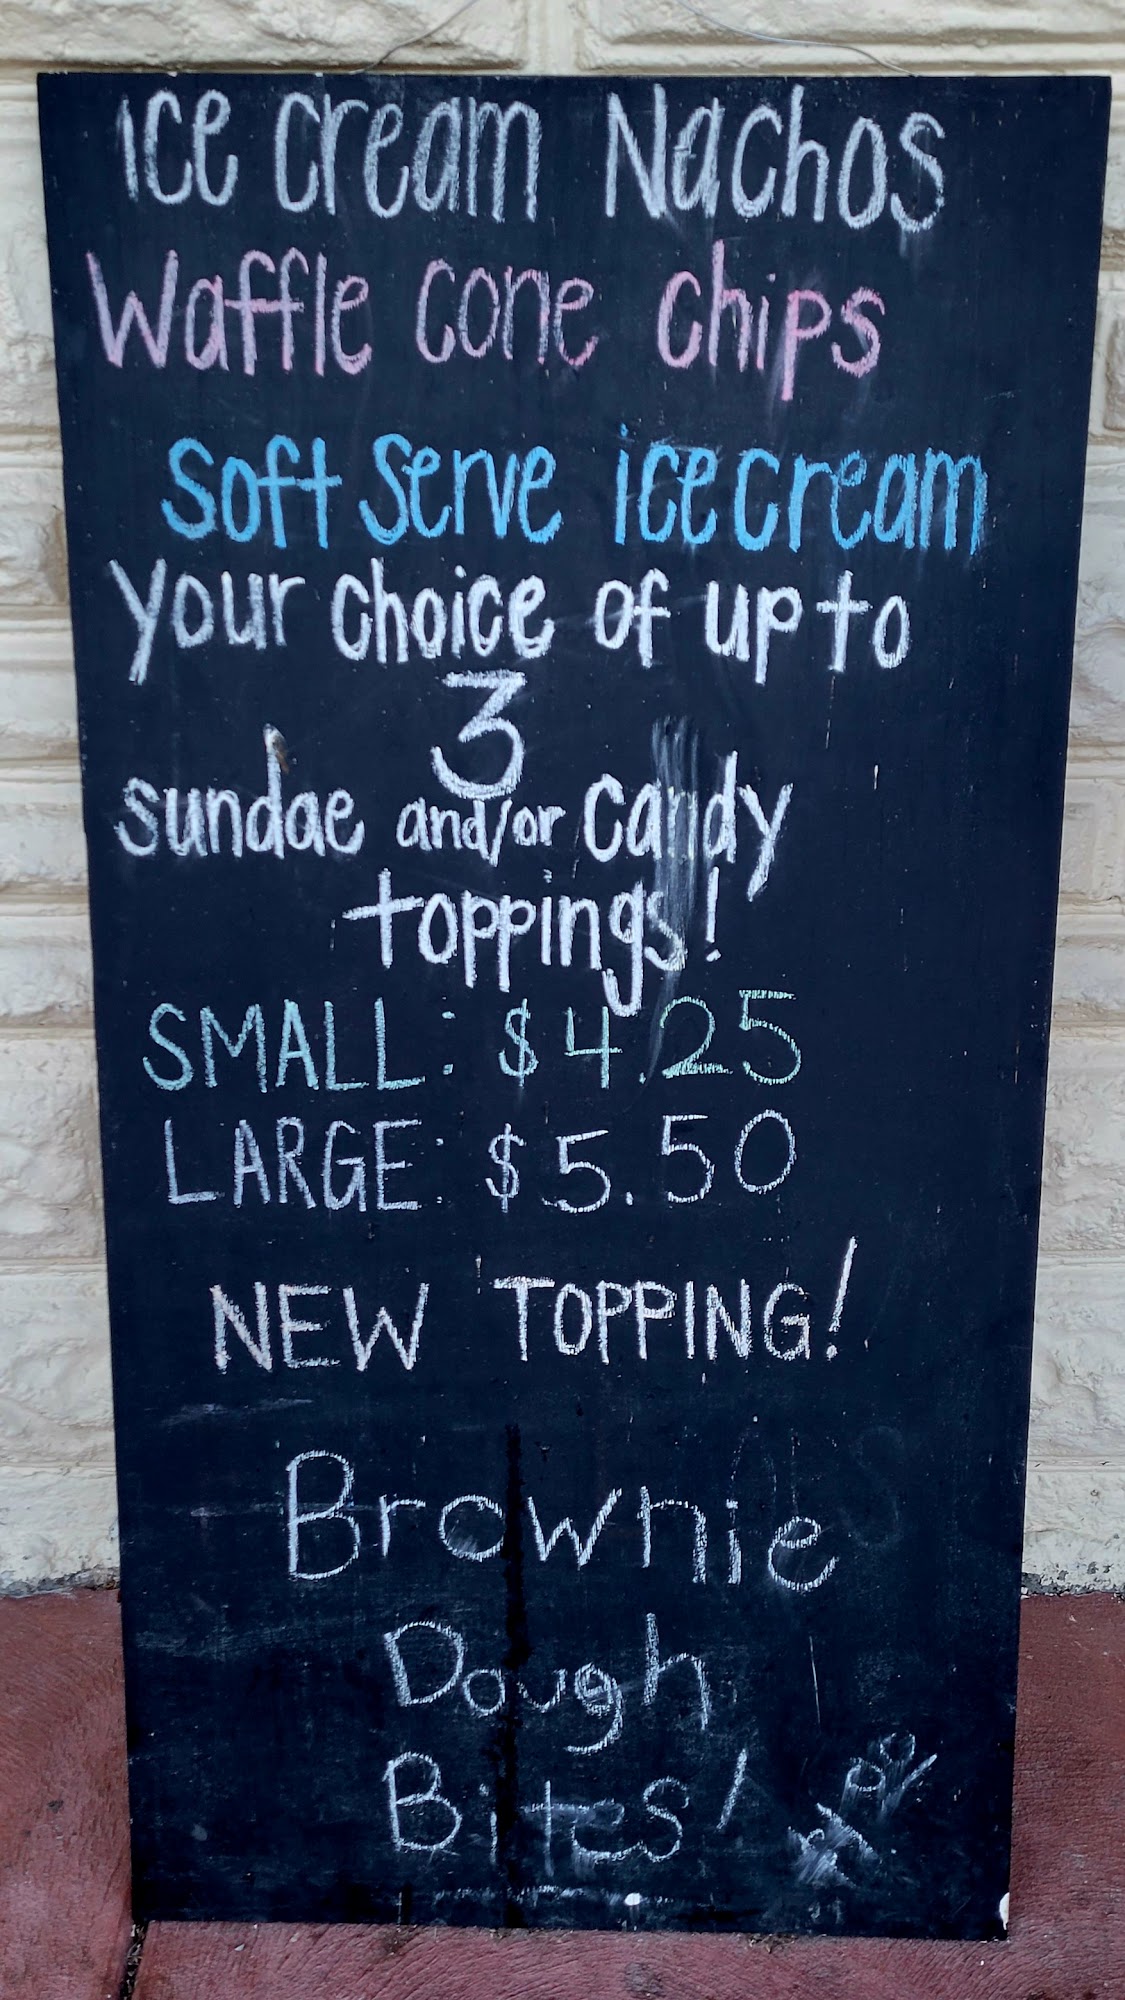 ice cream Nachos
Waffle cone chips
soft serve ice cream
your choice of up to
3
sundae and/or candy
toppings!
SMALL: $4.25
LARGE: $5.50
NEW TOPPING!
Brownie
Dough
Bites!